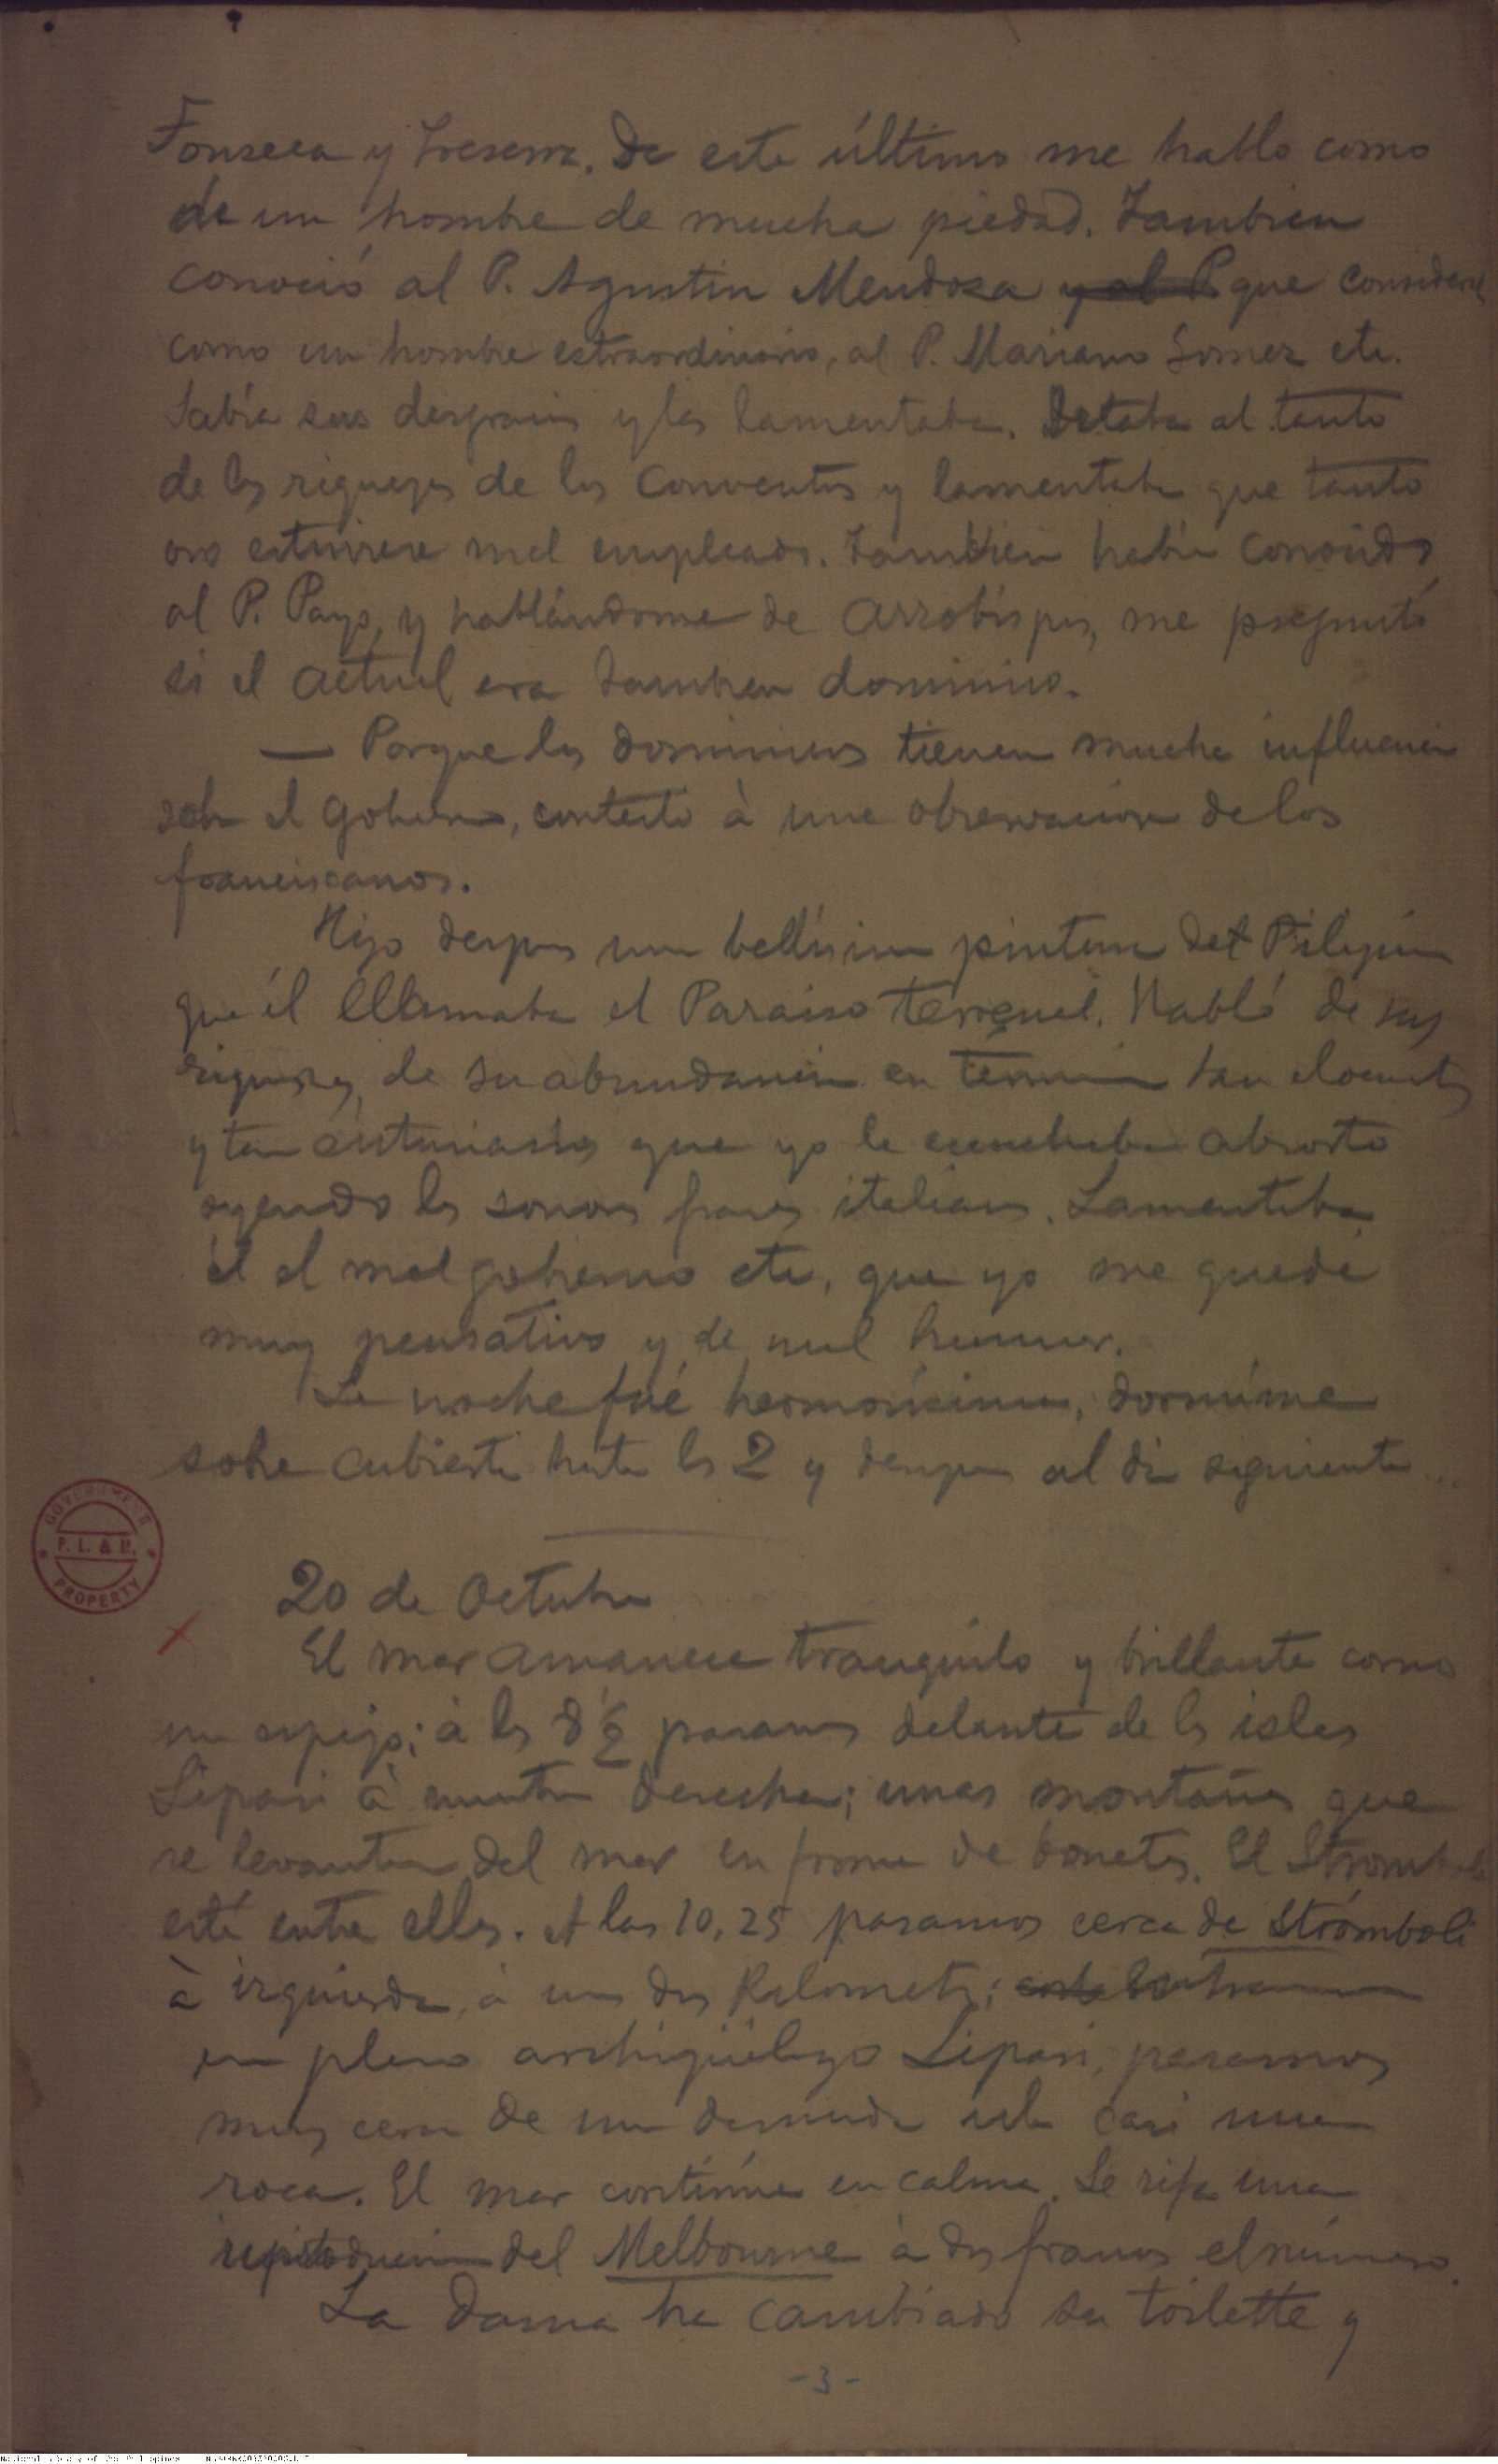 Fonseca y Treserra. De este último me hablo como
de un hombre de mucha piedad. Tambien
conoció al P. Agustin Mendoza y al P. que considera
como un hombre extraordinario, al P. Mariano Gomez etc.
Sabía sus desgracias y las lamentaba. Estaba al tanto
de las riquezas de los conventos y lamentaba que tanto
oro estuviere mal empleado. Tambien había conocido
al P. Payo, y hablándome de arzobispos, me preguntó
si el actual era tambien dominico.
— Porque los dominicos tienen mucha influencia
sobre el gobierno, contestó à una observacion de los
franciscanos.
Hizo despues una bellísima pintura de Filipinas
que él llamaba el Paraiso terrenal. Habló de sus
riquezas, de su abundancia en terminos tan elocuentes
y tan entusiastas que yo le escuchaba absorto
oyendo las sonoras frases italianas. Lamentaba
él el mal gobierno etc, que yo me quedé
muy pensativo y de mal humor.
La noche fué hermosísima, dormíme
sobre cubierta hasta las 2 y despues al dia siguiente ..
20 de Octubre
El mar amanece tranquilo y brillante como
un espejo; à las 8 1/2 pasamos delante de las islas
Lipari à nuestra derecha; unas montañas que
se levantan del mar en forma de bonetes. El Stromboli
está entre ellas. A las 10,25 pasamos cerca de Strómboli
à izquierda, à unos dos Kilometros;
en pleno archipiélago Lipari, pasamos
muy cerca de una desnuda isla casi una
roca. El mar continúa en calma. Se rifa una
reproduccion del Melbourne à dos francos el número.
La dama ha cambiado su toilette y
-3-
GOVERNMENT
P. L. & M.
PROPERTY